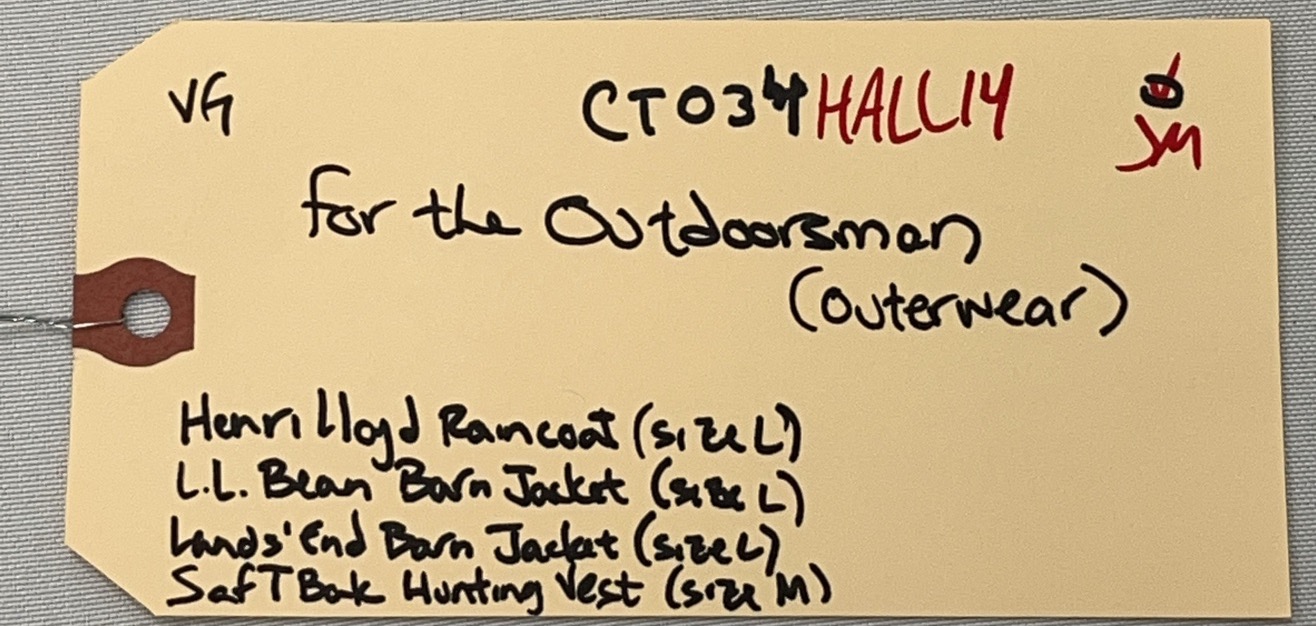 VG
CT034HALL14
JM
for the Outdoorsman
(outerwear)
Henri Lloyd Raincoat (size L)
L.L. Bean Barn Jacket (size L)
Lands' End Barn Jacket (size L)
SafTBak Hunting Vest (size M)